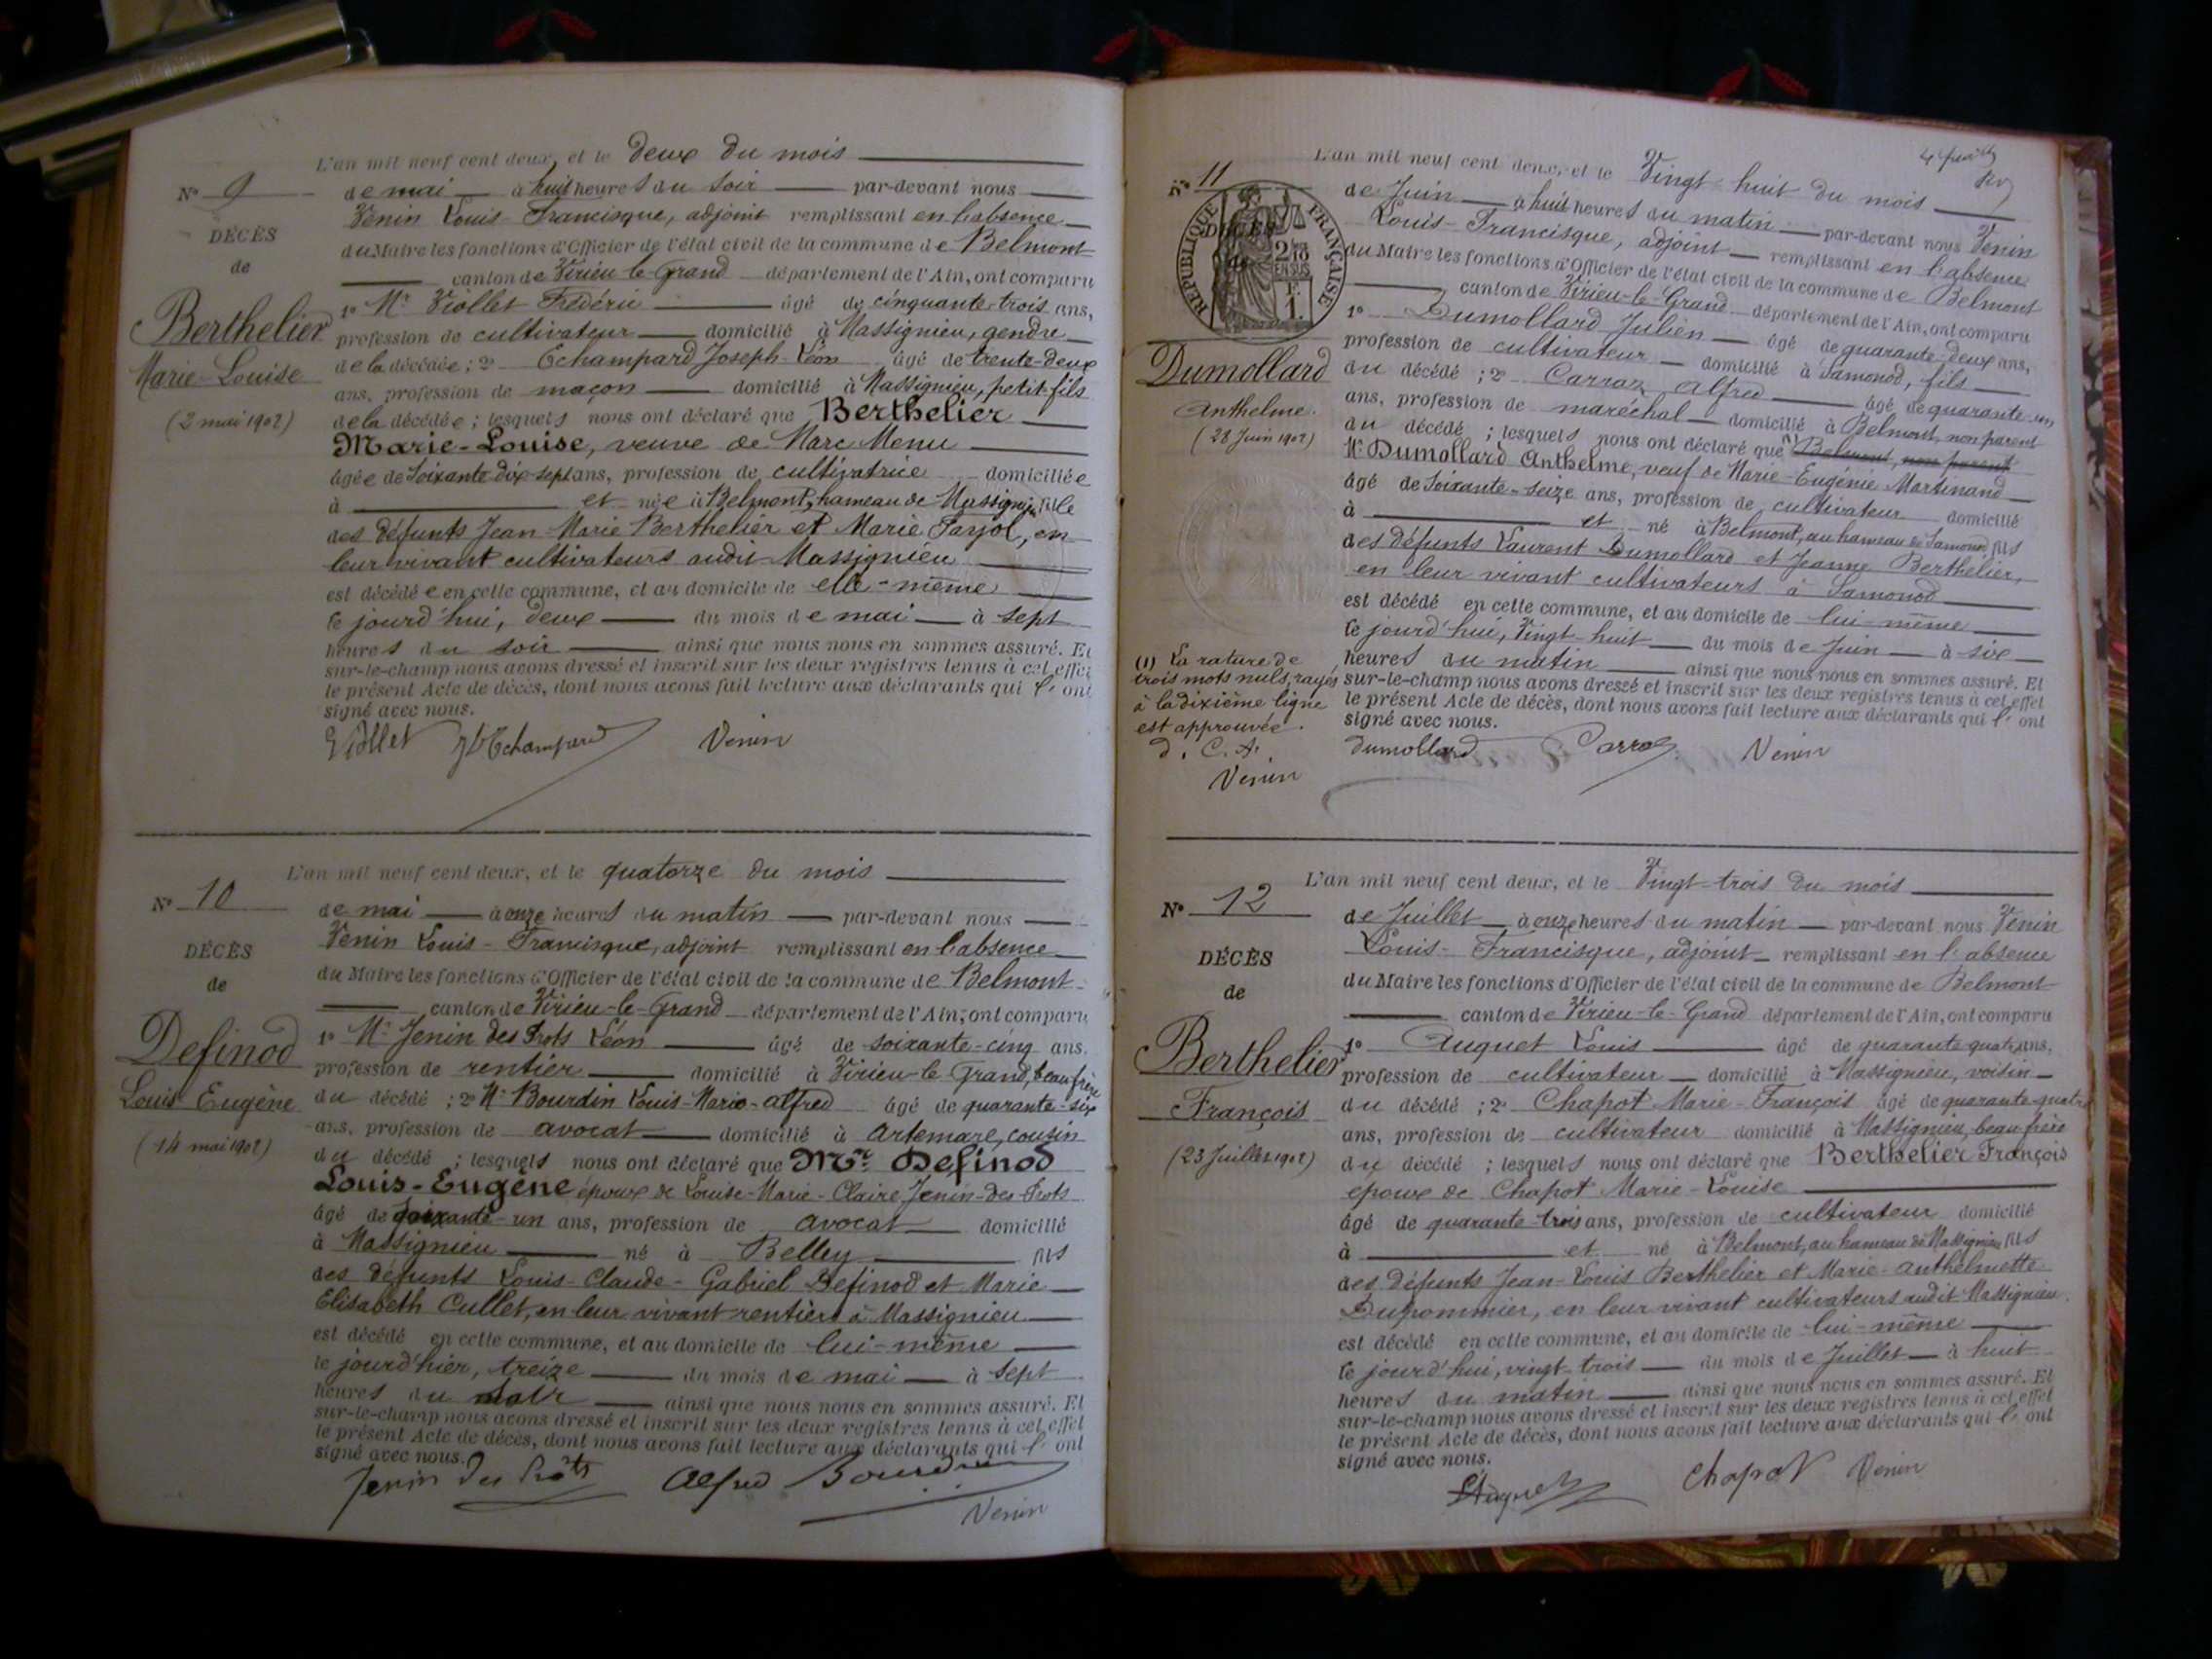 L'an mil neuf cent deux, et le deux du mois
N° 9
de mai à huit heures du soir par-devant nous
Venin Louis-Francisque, adjoint remplissant en l'absence
DÉCÈS
du Maire les fonctions d'Officier de l'état civil de la commune de Belmont
de
canton de Virieu-le-Grand département de l'Ain, ont comparu
Berthelier
1° Mr Viollet Frédéric âgé de cinquante-trois ans,
profession de cultivateur domicilié à Massignieu, gendre
Marie-Louise
de la décédée ; 2° Echampard Joseph-Léon âgé de trente-deux
ans, profession de maçon domicilié à Massignieu, petit-fils
(2 mai 1902)
de la décédée ; lesquels nous ont déclaré que Berthelier
Marie-Louise, veuve de Marc Menu
âgée de soixante dix-sept ans, profession de cultivatrice domiciliée
à et née à Belmont, hameau de Massignieu fille
des défunts Jean-Marie Berthelier et Marie en
leur vivant cultivateurs audit Massignieu
est décédée en cette commune, et au domicile de elle-même
le jourd'hui, deux du mois de mai à sept
heures du soir ainsi que nous nous en sommes assuré. Et
sur-le-champ nous avons dressé et inscrit sur les deux registres tenus à cet effet
le présent Acte de décès, dont nous avons fait lecture aux déclarants qui l' ont
signé avec nous.
Viollet Echampard Venin
L'an mil neuf cent deux, et le quatorze du mois
N° 10
de mai à onze heures du matin par-devant nous
Venin Louis-Francisque, adjoint remplissant en l'absence
DÉCÈS
du Maire les fonctions d'Officier de l'état civil de la commune de Belmont
de
canton de Virieu-le-Grand département de l'Ain, ont comparu
Definod
1° Mr Jenin des Prots Léon âgé de soixante-cinq ans.
profession de rentier domicilié à Virieu-le Grand, beau frère
Louis Eugène
du décédé ; 2° Mr Bourdin Louis-Marie-Alfred âgé de quarante-six
ans, profession de avocat domicilié à Artemare, cousin
(14 mai 1902)
du décédé ; lesquels nous ont déclaré que Mr Definod
Louis-Eugène époux de Louise-Marie-Claire Jenin-des-Prots
âgé de soixante-un ans, profession de avocat domicilié
à Massignieu né à Belley fils
des défunts Louis-Claude-Gabriel Definod et Marie
Elisabeth Cullet, en leur vivant rentiers à Massignieu
est décédé en cette commune, et au domicile de lui-même
le jourd'hier, treize du mois de mai à sept
heures du soir ainsi que nous nous en sommes assuré. Et
sur-le-champ nous avons dressé et inscrit sur les deux registres tenus à cet effet
le présent Acte de décès, dont nous avons fait lecture aux déclarants qui l' ont
signé avec nous.
Jenin des Prots Alfred Bourdin
Venin
L'an mil neuf cent deux, et le Vingt huit du mois
N° 11
de Juin à huit heures du matin par-devant nous Venin
Louis-Francisque, adjoint remplissant en l'absence
RÉPUBLIQUE FRANÇAISE
DÉCÈS
2/10 EN SUS
F. 1.
du Maire les fonctions d'Officier de l'état civil de la commune de Belmont
canton de Virieu-le-Grand département de l'Ain, ont comparu
1° Dumollard Julien âgé de quarante-deux ans,
profession de cultivateur domicilié à Samonod, fils
Dumollard
du décédé ; 2° Carraz Alfred âgé de quarante-un
Anthelme.
ans, profession de maréchal domicilié à Belmont, non parent
(28 Juin 1902)
du décédé ; lesquels nous ont déclaré que (1) Belmont, non parent
Mr Dumollard Anthelme, veuf de Marie-Eugénie Martinand
âgé de soixante-seize ans, profession de cultivateur domicilié
à et né à Belmont, au hameau de Samonod fils
des défunts Laurent Dumollard et Jeanne Berthelier,
en leur vivant cultivateurs à Samonod
est décédé en cette commune, et au domicile de lui-même
le jourd'hui, Vingt-huit du mois de Juin à six
heures du matin ainsi que nous nous en sommes assuré. Et
sur-le-champ nous avons dressé et inscrit sur les deux registres tenus à cet effet
le présent Acte de décès, dont nous avons fait lecture aux déclarants qui l' ont
signé avec nous.
(1) La rature de
trois mots nuls, rayés
à la dixième ligne
est approuvée.
D. C. A.
Venin
Dumollard Carraz Venin
L'an mil neuf cent deux, et le Vingt-trois du mois
N° 12
de Juillet à onze heures du matin par-devant nous Venin
Louis-Francisque, adjoint remplissant en l'absence
DÉCÈS
du Maire les fonctions d'Officier de l'état civil de la commune de Belmont
de
canton de Virieu-le-Grand département de l'Ain, ont comparu
Berthelier
1° Auguet Louis âgé de quarante quatre ans,
profession de cultivateur domicilié à Massignieu, voisin
François
du décédé ; 2° Chapot Marie-François âgé de quarante-quatre
ans, profession de cultivateur domicilié à Massignieu, beau frère
(23 Juillet 1902)
du décédé ; lesquels nous ont déclaré que Berthelier François
époux de Chapot Marie-Louise
âgé de quarante-trois ans, profession de cultivateur domicilié
à et né à Belmont, au hameau de Massignieu fils
des défunts Jean-Louis Berthelier et Marie-Anthelmette
Dupommier, en leur vivant cultivateurs audit Massignieu.
est décédé en cette commune, et au domicile de lui-même
le jourd'hui, vingt-trois du mois de Juillet à huit
heures du matin ainsi que nous nous en sommes assuré. Et
sur-le-champ nous avons dressé et inscrit sur les deux registres tenus à cet effet
le présent Acte de décès, dont nous avons fait lecture aux déclarants qui l' ont
signé avec nous.
Auguet Chapot Venin